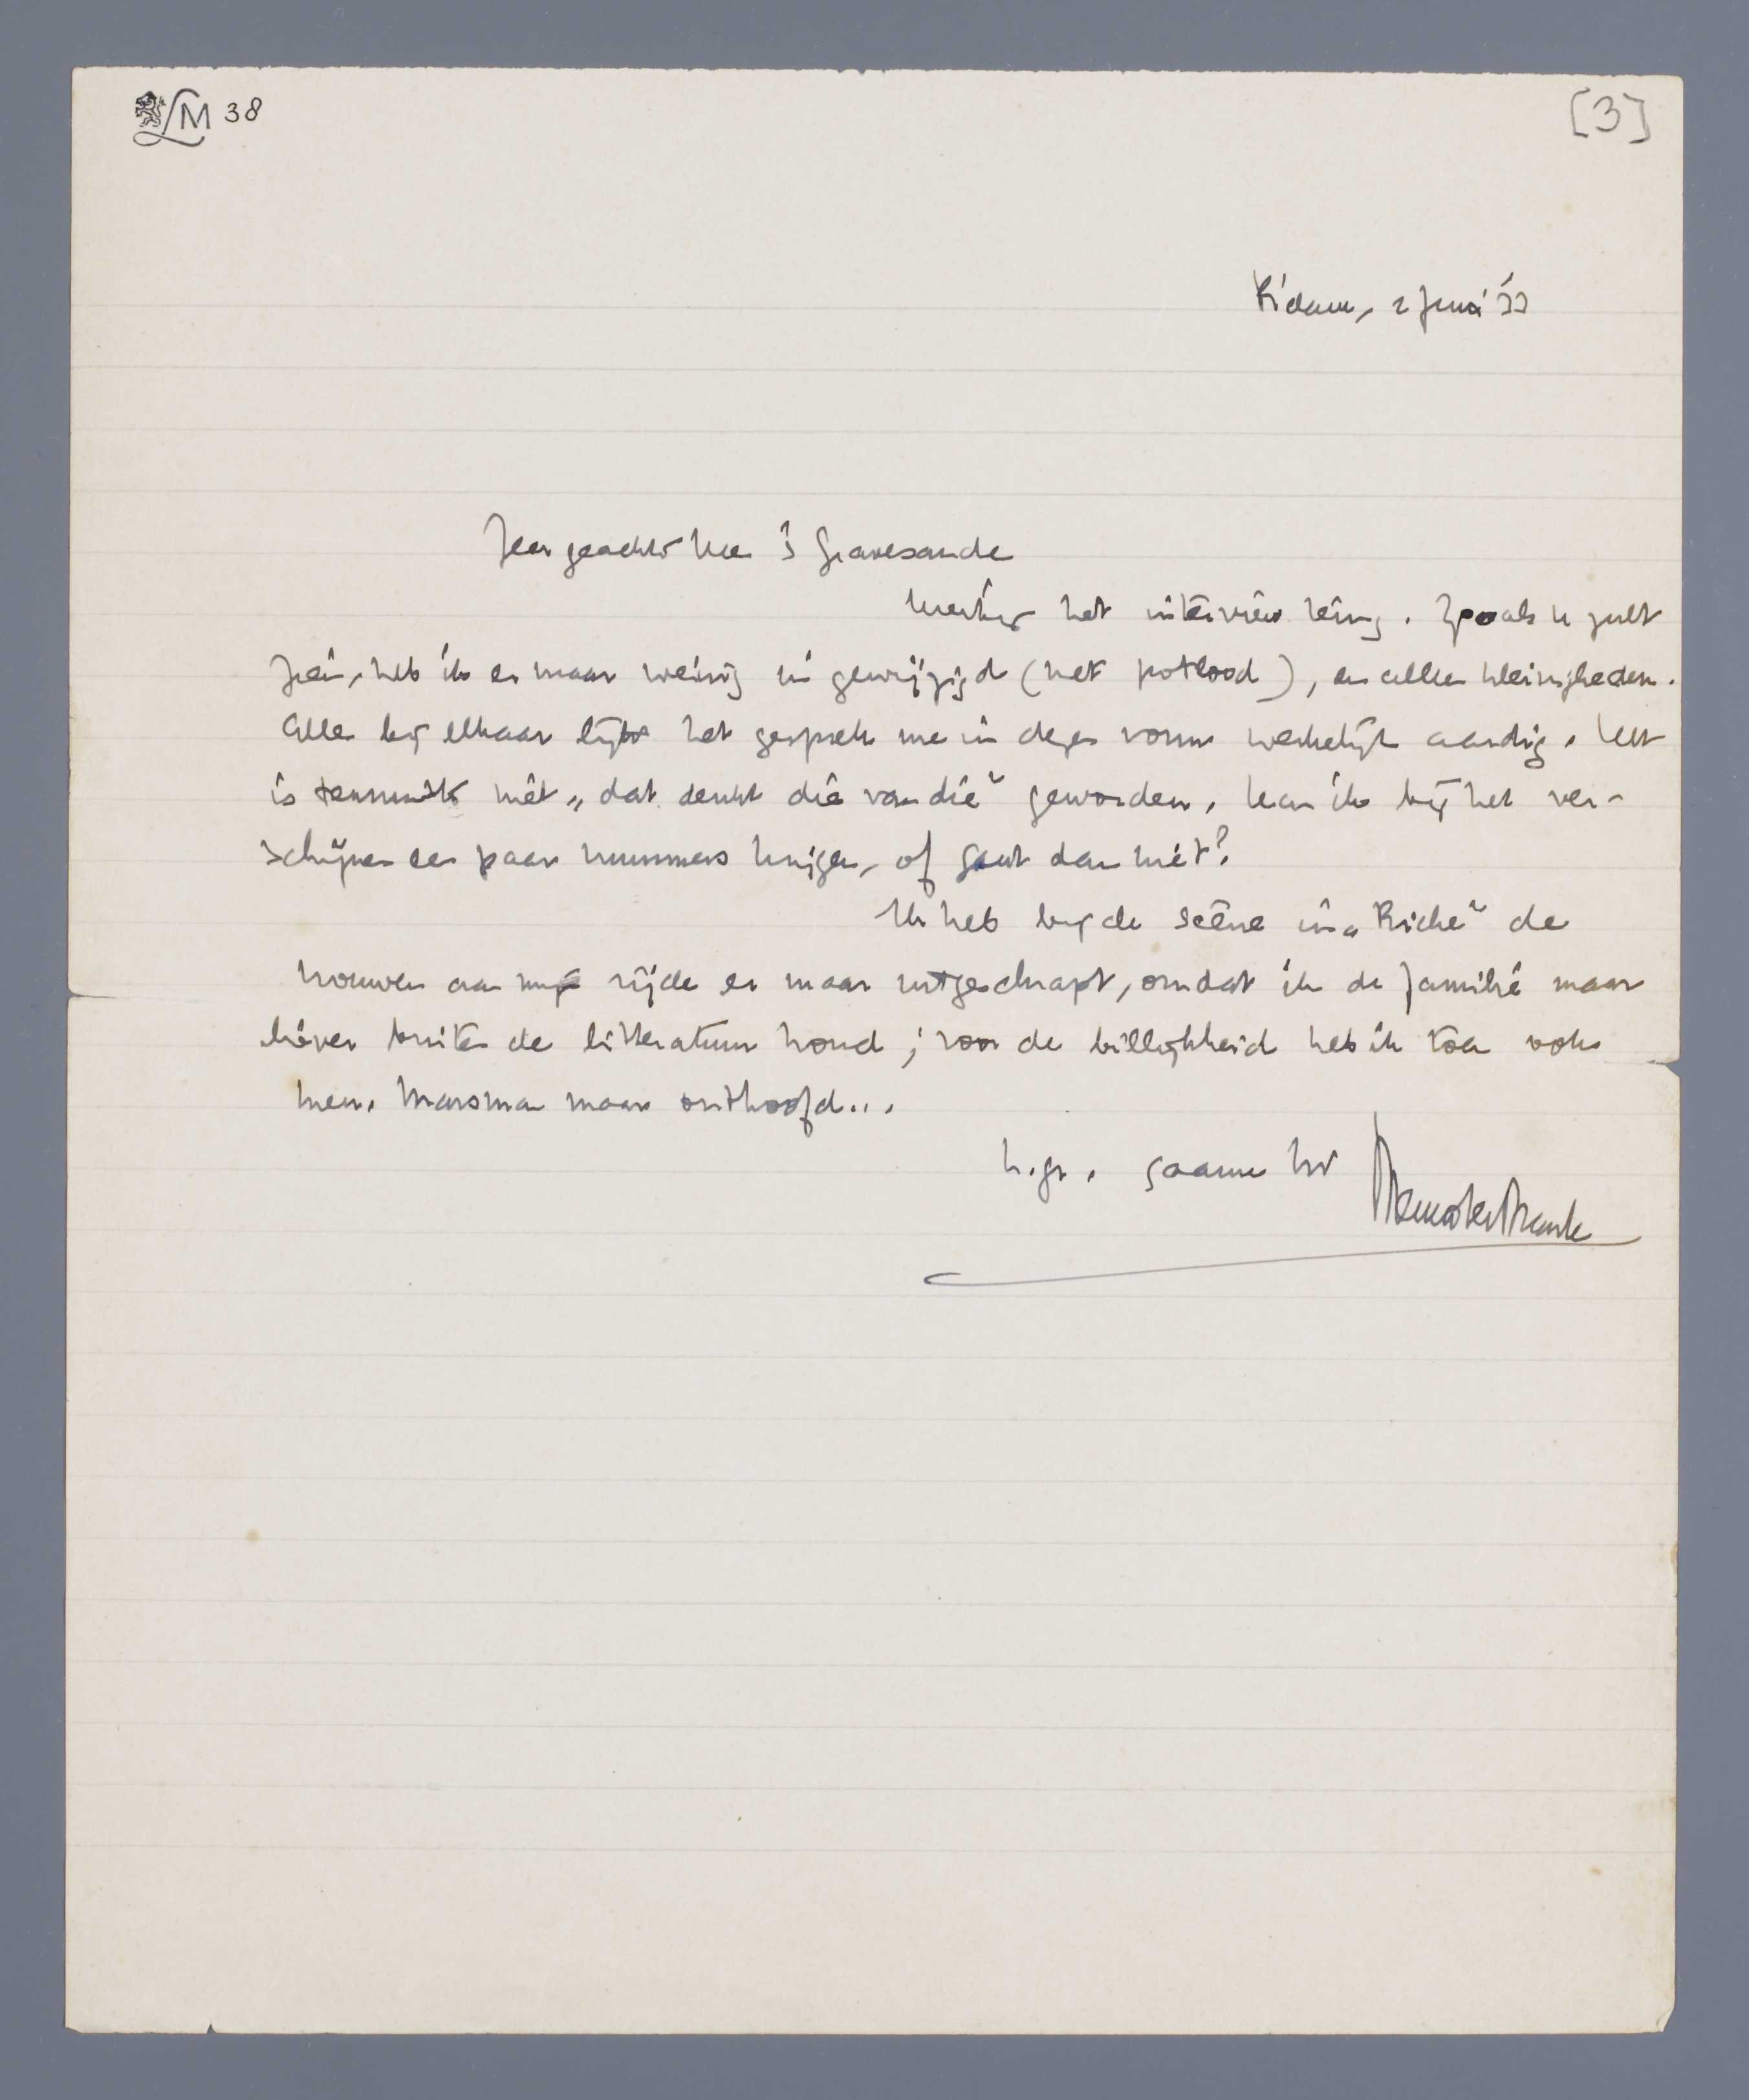 LM 38
[3]
R'dam, 2 Juni '33
Zeer geachte Heer 's Gravesande
Hierbij het interview terug. Zooals U zult
zien, heb ik er maar weinig in gewijzigd (met potlood), en alleen kleinigheden.
Alles bij elkaar lijkt het gesprek me in dezen vorm werkelijk aardig. Het
is tenminste niet „dat denkt die van die" geworden. Kan ik bij het ver-
schijnen een paar nummers krijgen, of gaat dan niet?
Ik heb bij de scène in „Riche" de
vrouwen aan mijn zijde er maar uitgeschrapt, omdat ik de familie maar
liever buiten de litteratuur houd; voor de billijkheid heb ik toen ook
mevr. Marsman maar onthoofd...
h.gr. gaarne Uw
Menno ter Braak